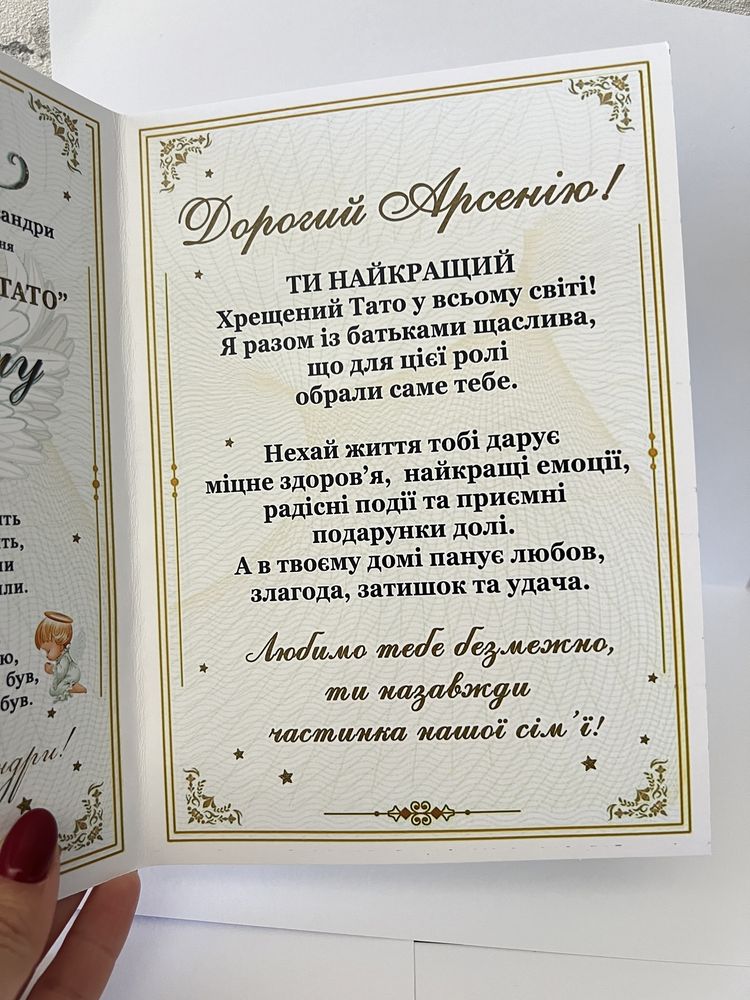 ТАТО”
Дорогий Арсенію!
ТИ НАЙКРАЩИЙ
Хрещений Тато у всьому світі!
Я разом із батьками щаслива,
що для цієї ролі
обрали саме тебе.
Нехай життя тобі дарує
міцне здоров’я, найкращі емоції,
радісні події та приємні
подарунки долі.
А в твоєму домі панує любов,
злагода, затишок та удача.
Любимо тебе безмежно,
ти назавжди
частинка нашої сім’ї!
був,
був.